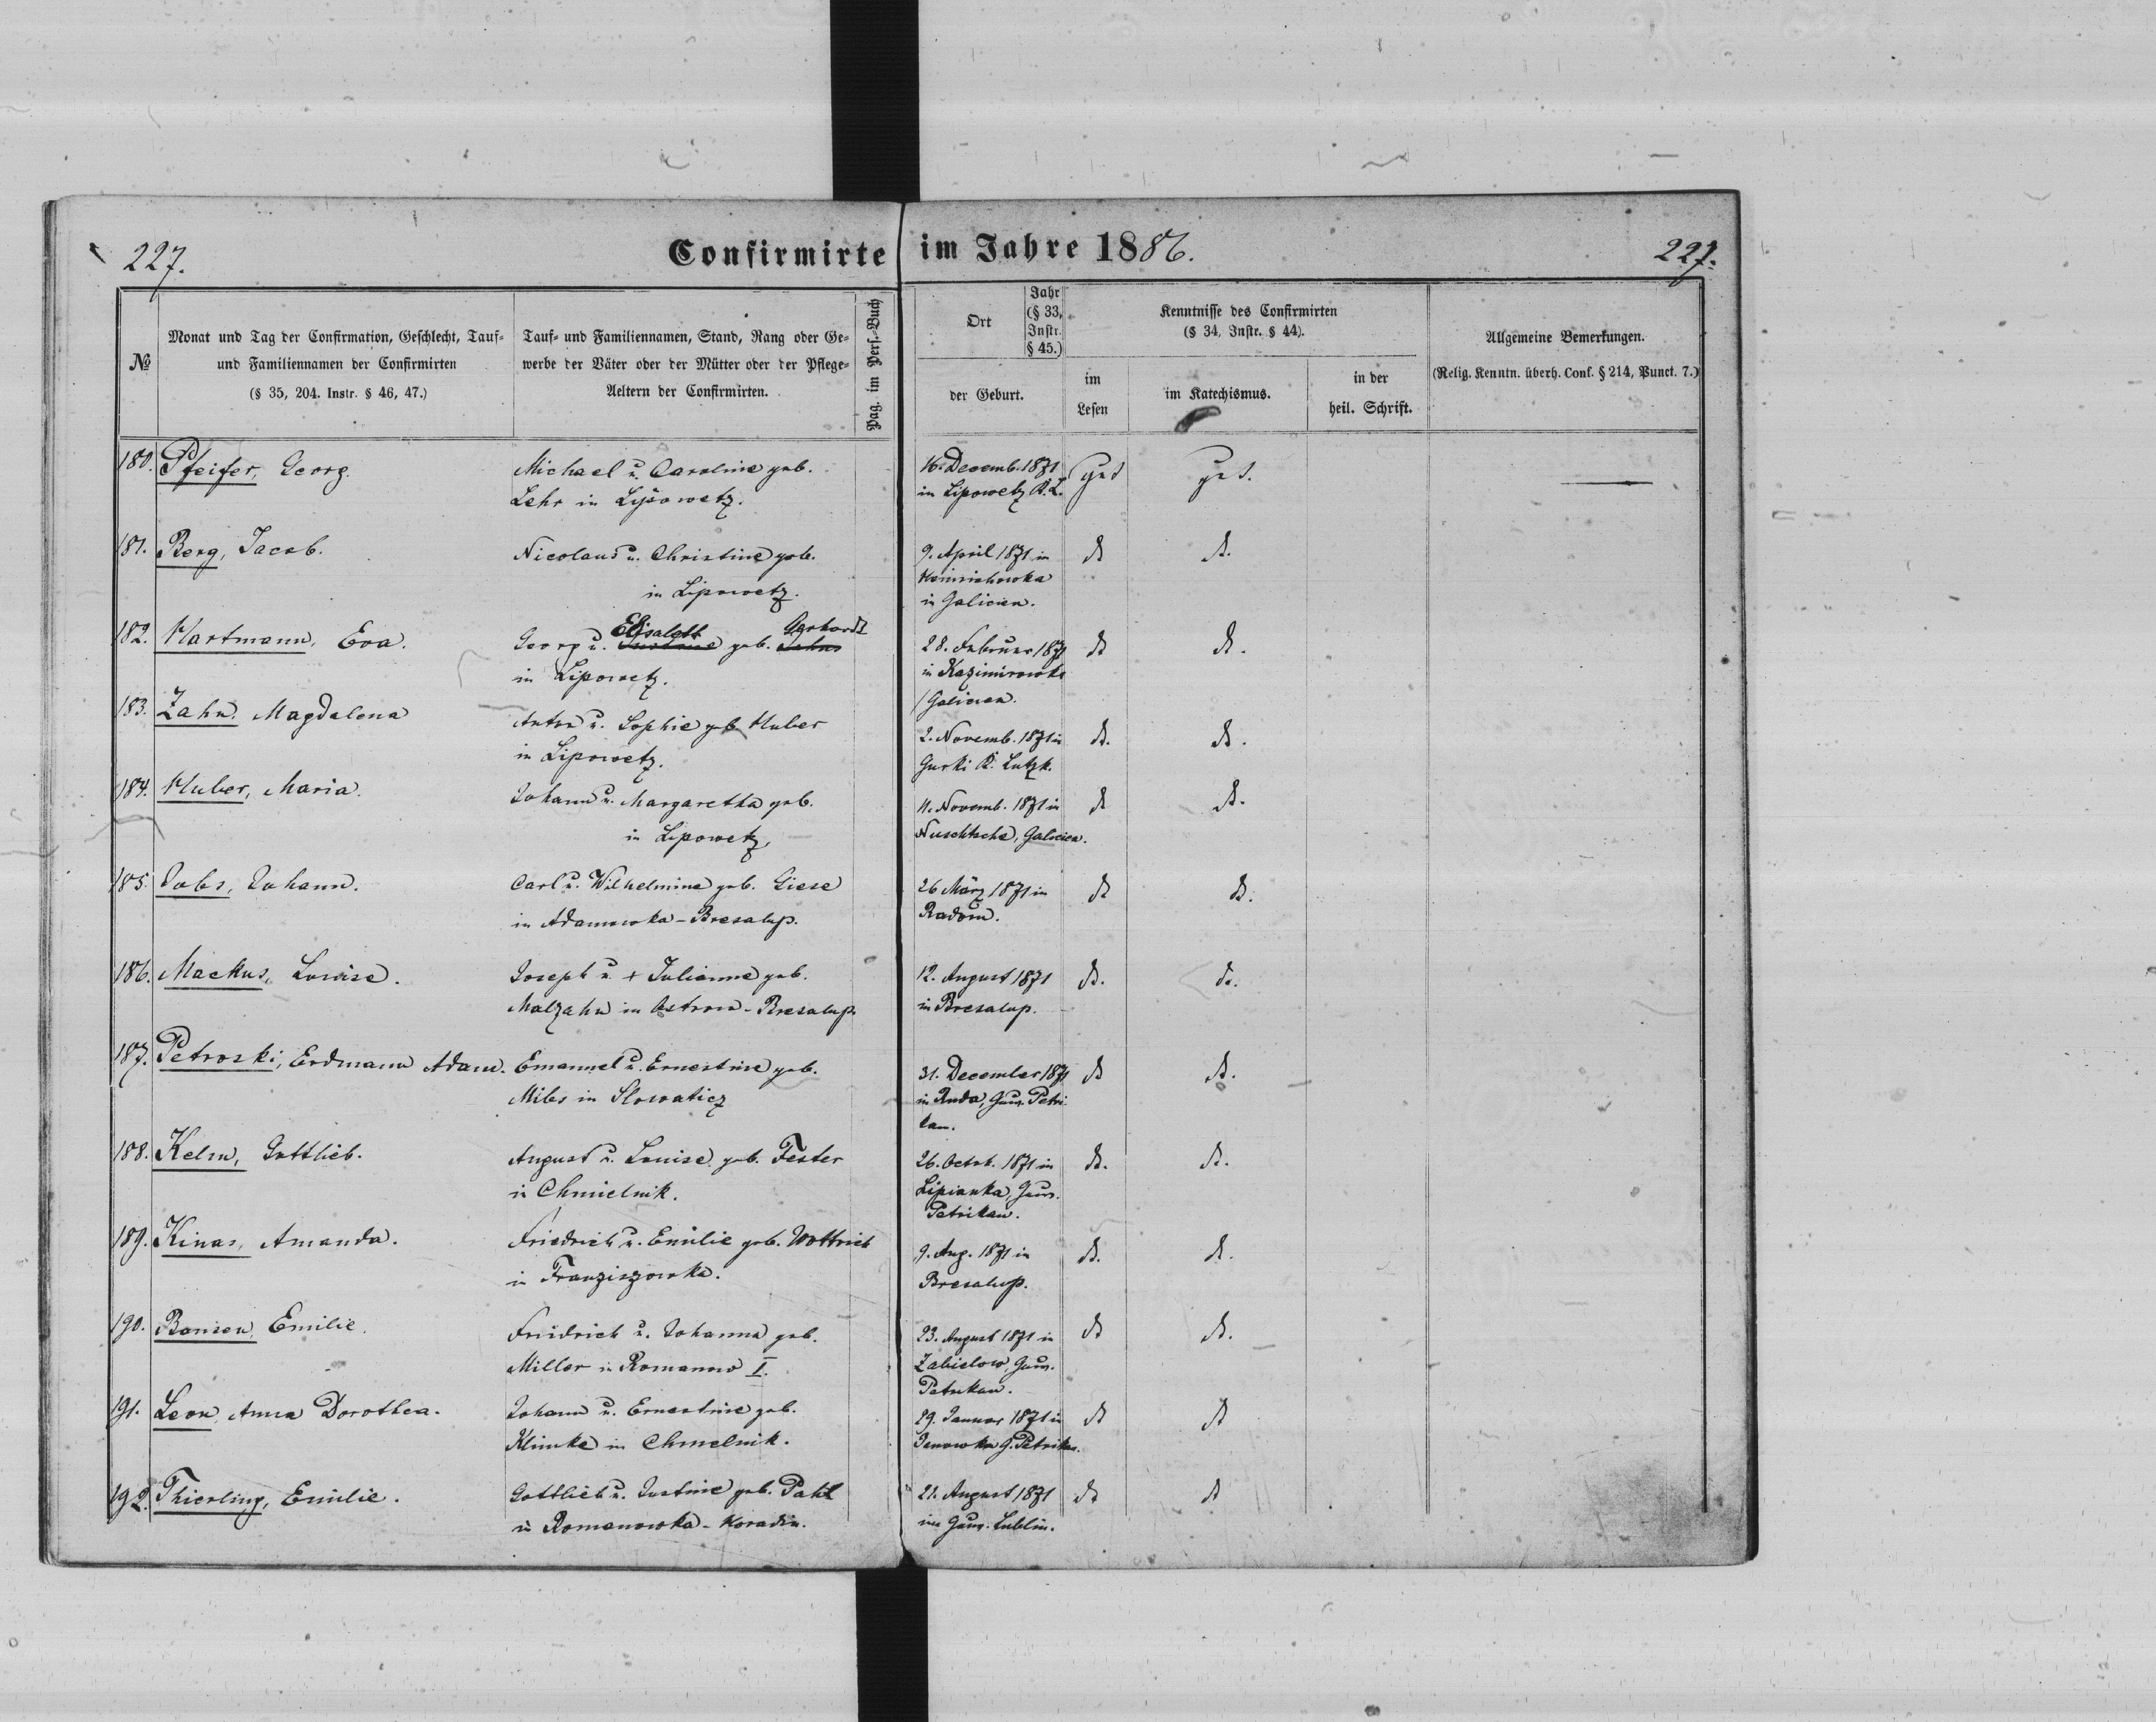 227.
Confirmirte im Jahre 1886.
227.
№
Monat und Tag der Confirmation, Geschlecht, Tauf-
und Familiennamen der Confirmirten
(§ 35, 204. Instr. § 46, 47.)
Tauf- und Familiennamen, Stand, Rang oder Ge-
werbe der Väter oder der Mütter oder der Pflege-
Aeltern der Confirmirten.
Pag. im Pers.-Buch
Ort
Jahr
(§ 33,
Instr.
§ 45.)
der Geburt.
Kenntnisse des Confirmirten
(§ 34, Instr. § 44).
im
Lesen
im Katechismus.
in der
heil. Schrift.
Allgemeine Bemerkungen.
(Relig. Kenntn. überh. Conf. § 214, Punct. 7.)
180. Pfeifer, Georg.
Michael u. Caroline geb.
Lehr in Lipowetz.
16. Decemb. 1871
in Lipowetz K. L.
gut
gut.
181. Berg, Jacob.
Nicolaus u. Christine geb.
in Lipowetz.
9. April 1871 in
Heinrichowka
in Galicien.
182. Hartmann, Eva.
Elisabeth Gerhardt
Georg u. geb.
in Lipowetz.
28. Februar 1871
in Kazimirowka
/Galicien.
183. Zahn, Magdalena
Anton u. Sophie geb. Huber
in Lipowetz.
2. Novemb. 1871 in
Gurki K. Lutzk.
184. Huber, Maria.
Johann u. Margaretha geb.
in Lipowetz,
11. Novemb. 1871 in
Nuschtsche, Galicien.
185. Johann.
Carl u. Wilhelmine geb. Giese
in Adamowka-Bresalup.
26 März 1871 in
Radom.
186. Mackus, Louise.
Joseph u. + Julianne geb.
Malzahn in Ostrow-Bresalup.
12. August 1871
in Bresalup.
187. Petroski, Erdmann Adam.
Emanuel u. Ernestine geb.
Milbs in Slowaticz
31. December 1871
in Ruda, Guv. Petri-
kau.
188. Kelm, Gottlieb.
August u. Louise geb. Fester
in Chmielnik.
26. Octob. 1871 in
Lipianka, Guv.
Petrikau.
189. Kinas, Amanda.
Friedrich u. Emilie geb. Wottrich
in Franziszowka.
9. Aug. 1871 in
Bresalup.
190. Emilie.
Friedrich u. Johanna geb.
Miller in Romanow I.
23. August 1871 in
Zabielow, Guv.
Petrikau.
191. Leon, Anna Dorothea.
Johann u. Ernestine geb.
Klimke in Chmelnik.
29. Januar 1871 in
Janowka G. Petrikau.
192. Thierling, Emilie.
Gottlieb u. Justine geb. Pahl
in Romanowka-Koradin.
21. August 1871
im Guv. Lublin.